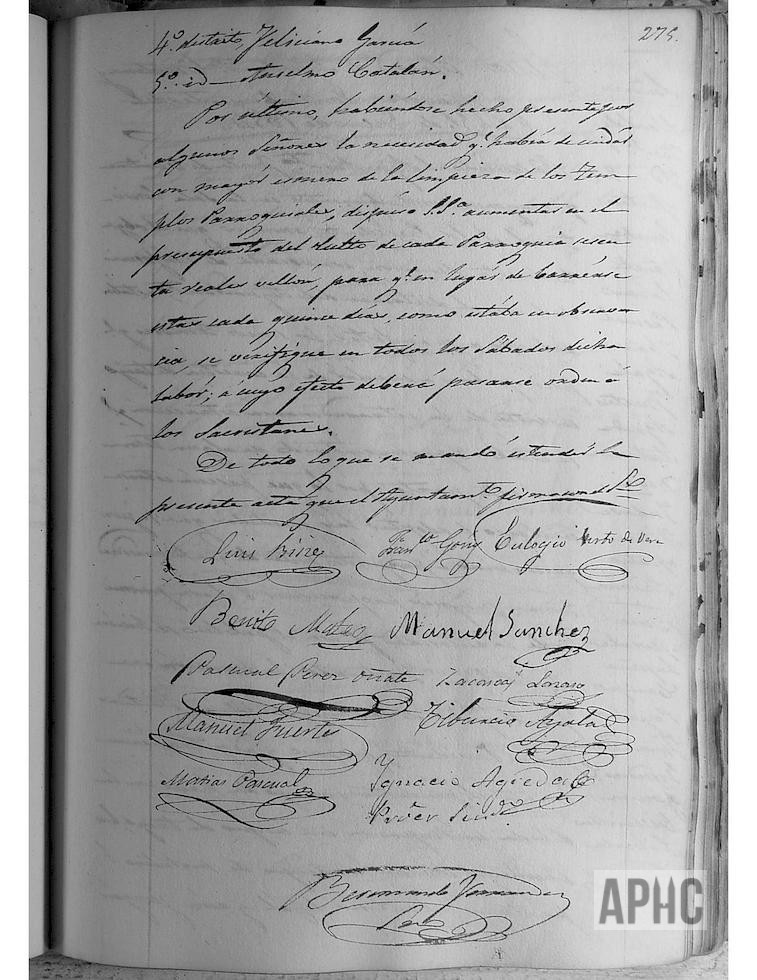 275.
4º. distrito Feliciano García
5º. id — Anselmo Catalán.
Por último, habiéndose hecho presente por
algunos Señores la necesidad q.e había de cuidar
con mayor esmero de la limpieza de los Tem
plos Parroquiales, dispuso S.S.a aumentar en el
presupuesto del Culto de cada Parroquia sesen
ta reales vellón, para q.e en lugar de barrerse
estas cada quince días, como estaba en observan
cia, se verifique en todos los Sábados dicha
labor; á cuyo efecto deberá pasarse orden á
los Sacristanes.
De todo lo que se mandó estender la
presente acta que el Ayuntam.to firmaron
Luis
Fran.co Eulogio de Vera
Benito Mateo Manuel Sanchez
Pascual Perez Oñate Lazaro
Manuel Fuerte Tiburcio Ayala
Matias Pascual Ignacio Agreda
Síndº.
Fernandez
Srio
APHC